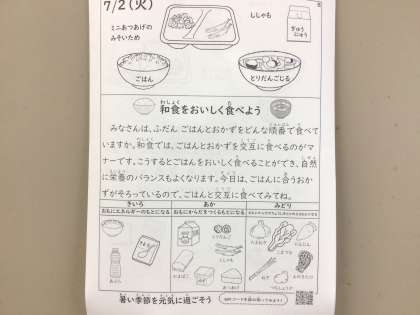 7/2(火)
ミニあつあげの
みそいため
ししゃも
ぎゅう
にゅう
ごはん
とりだんごじる
和食をおいしく食べよう
みなさんは、ふだん ごはんとおかずをどんな順番で食べて
いますか。和食では、ごはんとおかずを交互に食べるのがマ
ナーです。こうするとごはんをおいしく食べることができ、自然
に栄養のバランスもよくなります。今日は、ごはんに合うおか
ずがそろっているので、ごはんと交互に食べてみてね。
きいろ
あか
みどり
おもにエネルギーのもとになる
おもにからだをつくるもとになる
とりだんご
ししゃも
あつあげ
たまねぎ
こまつな
にんじん
暑い季節を元気に過ごそう